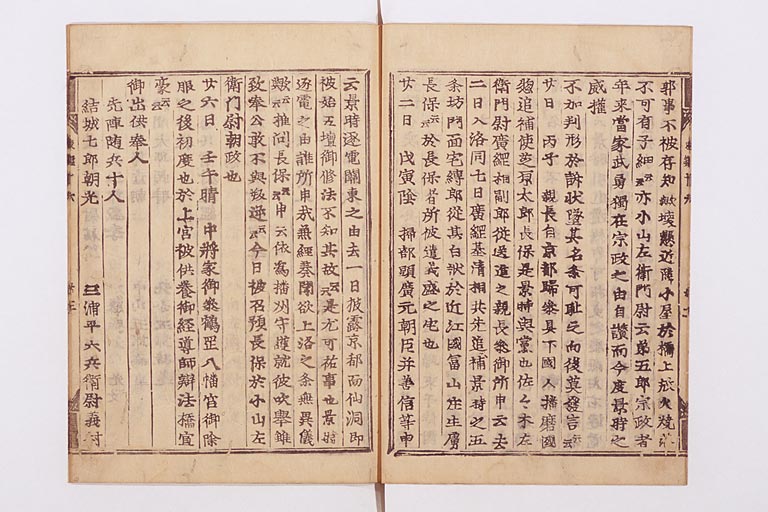 郭事不被存知歟壊懸近隣小屋於橋上放火焼訖
不可有子細云云亦小山左衛門尉云弟五郎宗政者
年来當家武勇獨在宗政之由自讃而今度景時之
威権
不加判形於訴状墜其名条可耻之向後莫發言云云
廿日丙子親長自京都歸參具下國人播磨國
惣追補使芝原太郎長保是景時與黨也佐々木左
衛門尉廣綱相副郎従送進之親長參御所申云去
二日入洛同七日廣綱基清相共生追補景時之五
条坊門面宅縛郎従其白状於近江國冨山庄生虜
長保云云於長保者所被遣義盛之宅也
廿二日戊寅陰掃部頭廣元朝臣并善信等申
云景時逐電關東之由去一日披露京都而仙洞即
被始五壇御修法不知其故云云是尤可怖事也景時
逐電之由誰所申哉無經奏聞欲上洛之条無異儀
歟云云推問長保云云申云依為播州守護就彼吹擧雖
致奉公敢不與叛逆云云今日被召預長保於小山左
衛門尉朝政也
廿六日壬午晴中将家御參鶴岳八幡宮御除
服之後初度也於上宮被供養御經導師辯法橋宣
豪云云
御出供奉人
先陣随兵十人
結城七郎朝光 三浦平六兵衛尉義村